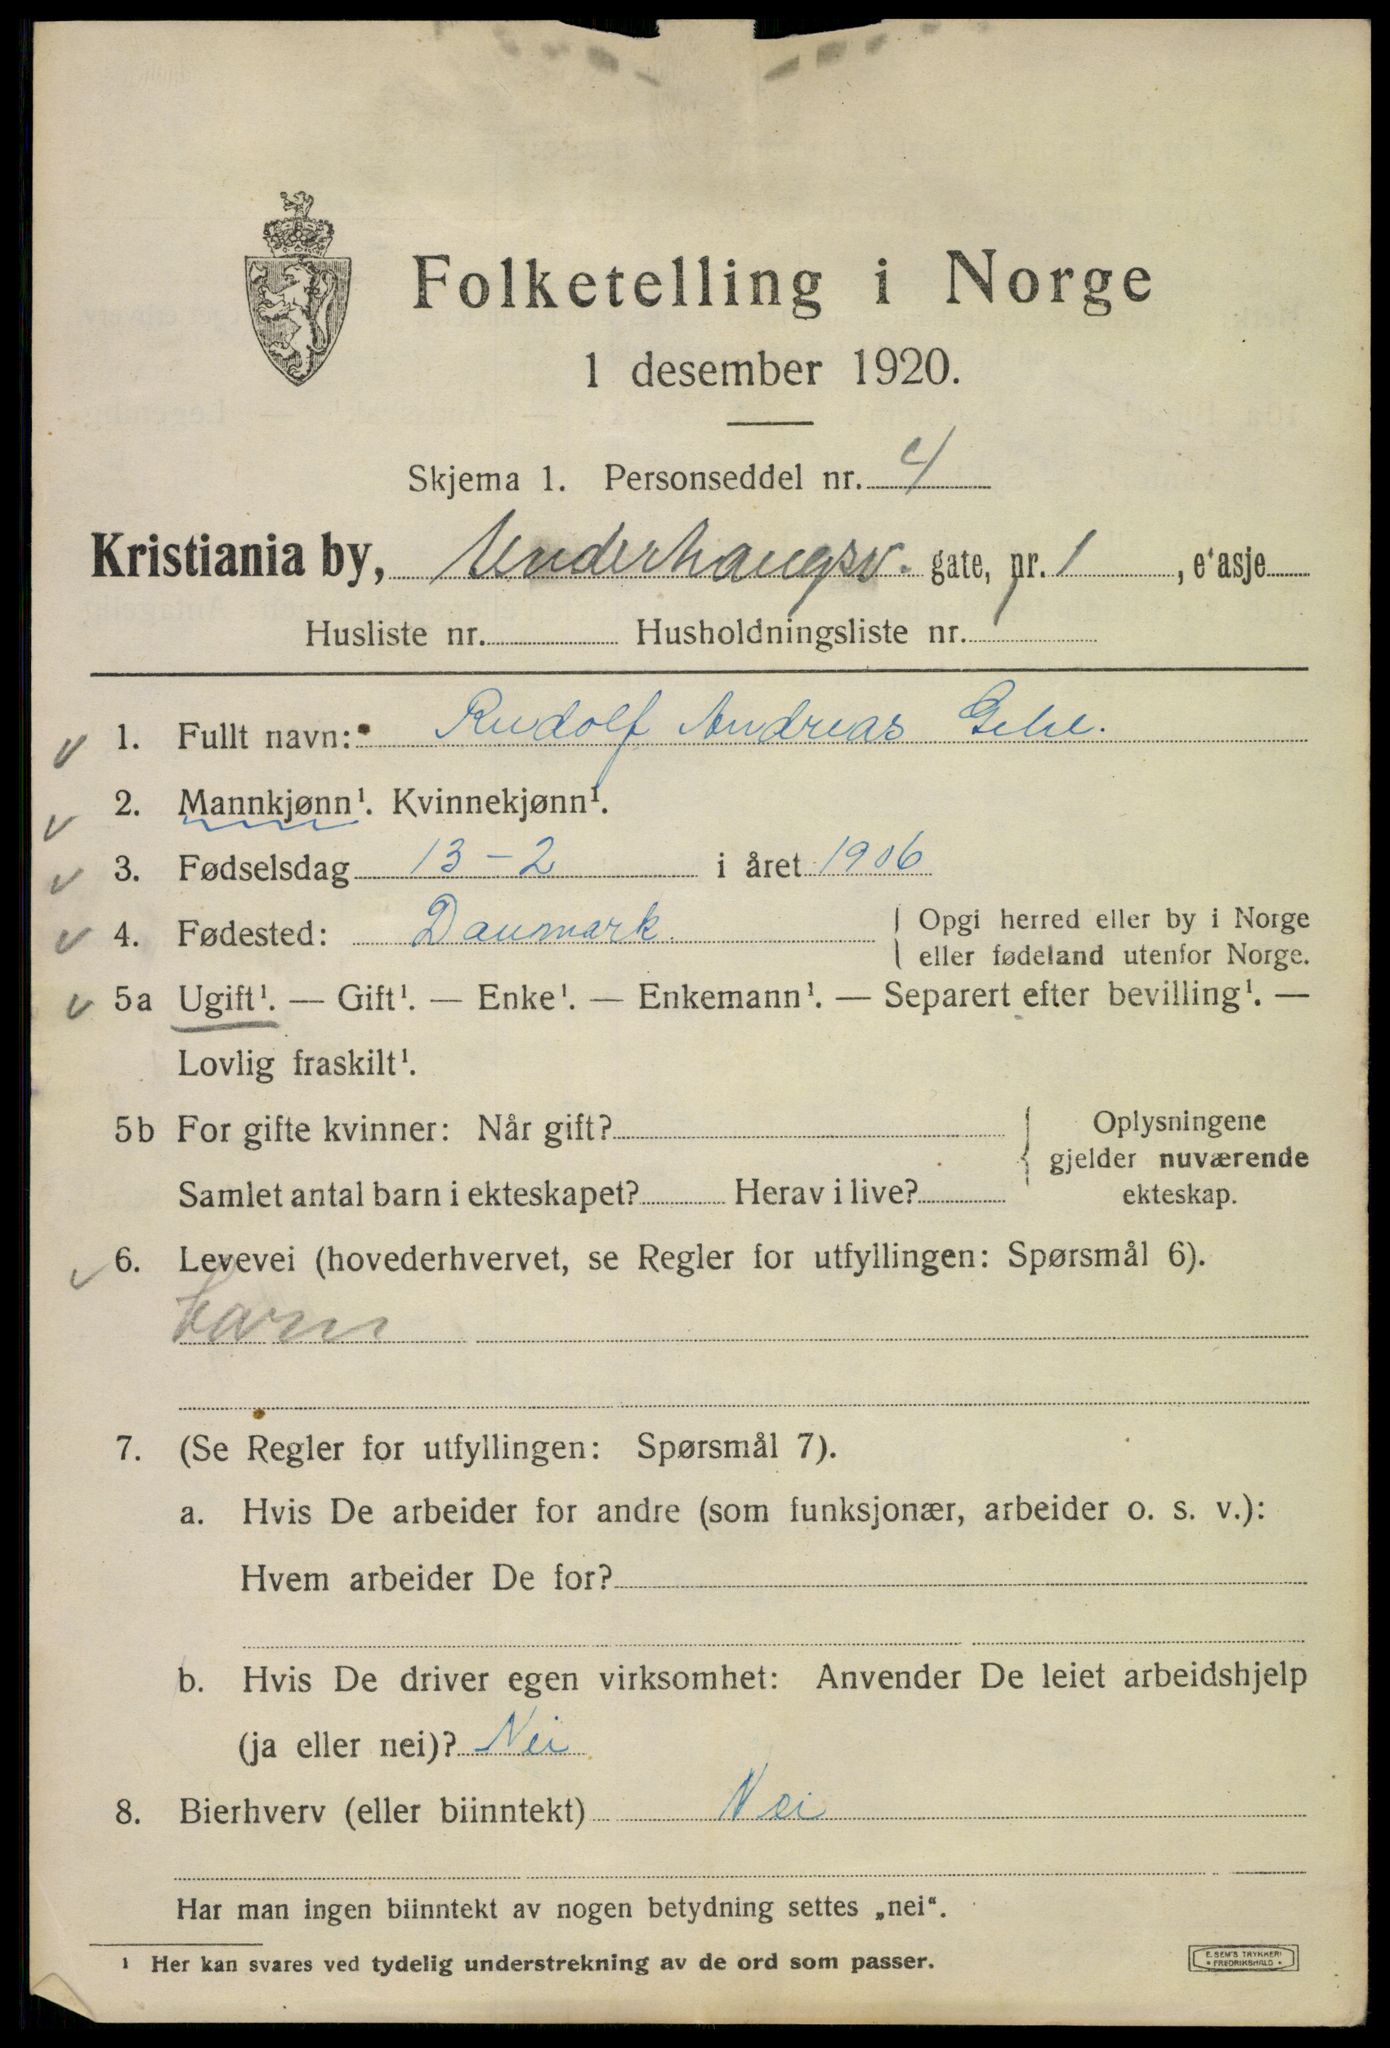 Folketelling i Norge
1 desember 1920.
Skjema 1. Personseddel nr. 4
Kristiania by, Underhaugsv. gate, nr. 1, etasje
Husliste nr. Husholdningsliste nr. 1
1. Fullt navn: Rudolf Andreas
2. Mannkjønn¹. Kvinnekjønn¹.
3. Fødselsdag 13-2 i året 1906
4. Fødested: Danmark. Opgi herred eller by i Norge
eller fødeland utenfor Norge.
5a Ugift¹. — Gift¹. — Enke¹. — Enkemann¹. — Separert efter bevilling¹. —
Lovlig fraskilt¹.
5b For gifte kvinner: Når gift? Oplysningene
gjelder nuværende
Samlet antal barn i ekteskapet? Herav i live? ekteskap.
6. Levevei (hovederhvervet, se Regler for utfyllingen: Spørsmål 6).
barn
7. (Se Regler for utfyllingen: Spørsmål 7).
a. Hvis De arbeider for andre (som funksjonær, arbeider o. s. v.):
Hvem arbeider De for?
b. Hvis De driver egen virksomhet: Anvender De leiet arbeidshjelp
(ja eller nei)? Nei
8. Bierhverv (eller biinntekt) Nei
Har man ingen biinntekt av nogen betydning settes „nei“.
¹ Her kan svares ved tydelig understrekning av de ord som passer.
E. SEM'S TRYKKERI
• FREDRIKSHALD •